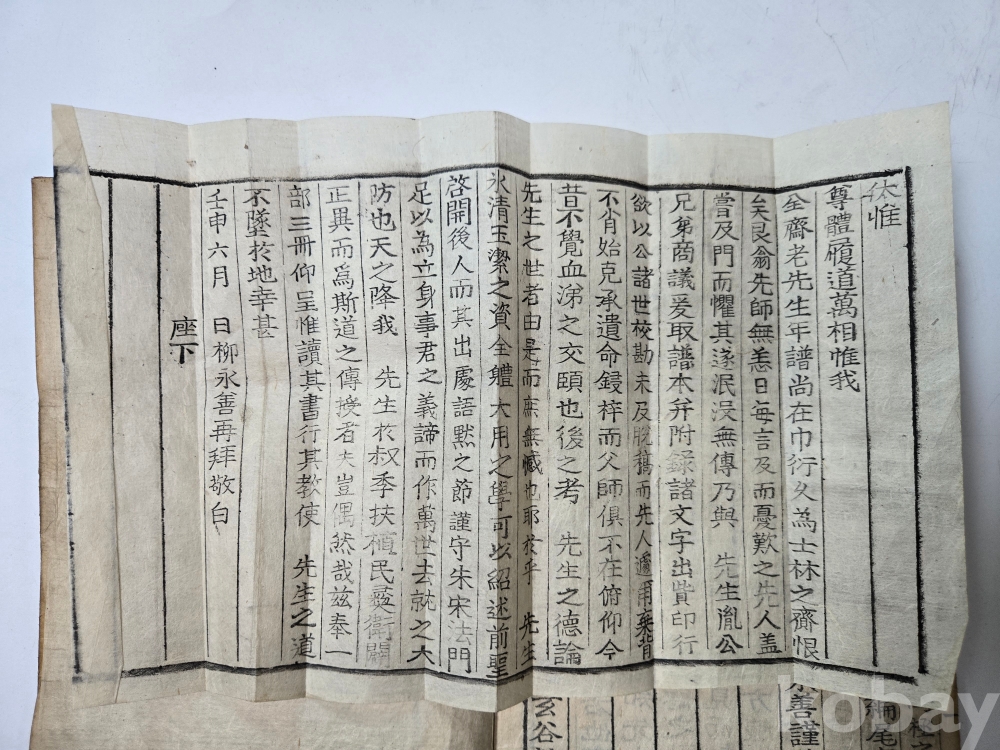 伏惟
尊體履道萬相惟我
全齋老先生年譜尚在巾衍久為士林之齎恨
矣艮翁先師無恙日每言及而憂歎之先人盖
嘗及門而懼其遂泯没無傳乃與 先生胤公
兄弟商議爰取譜本幷附録諸文字出貲印行
欲以公諸世校勘未及脫稿而先人遽爾棄背
不肖始克承遺命鋟梓而父師俱不在俯仰今
昔不覺血涕之交頤也後之考 先生之德論
先生之世者由是而庶無憾也耶於乎 先生
氷清玉潔之資全軆大用之學可以紹述前聖
啓開後人而其出處語默之節謹守朱宋法門
足以為立身事君之義諦而作萬世去就之大
防也天之降我 先生於叔季扶植民彛衛闢
正異而爲斯道之傳授者夫豈偶然哉兹奉一
部三冊仰呈惟讀其書行其教使 先生之道
不墜於地幸甚
壬申六月 日柳永善再拜敬白
座下
永善謹
編尾
玄谷
kobay